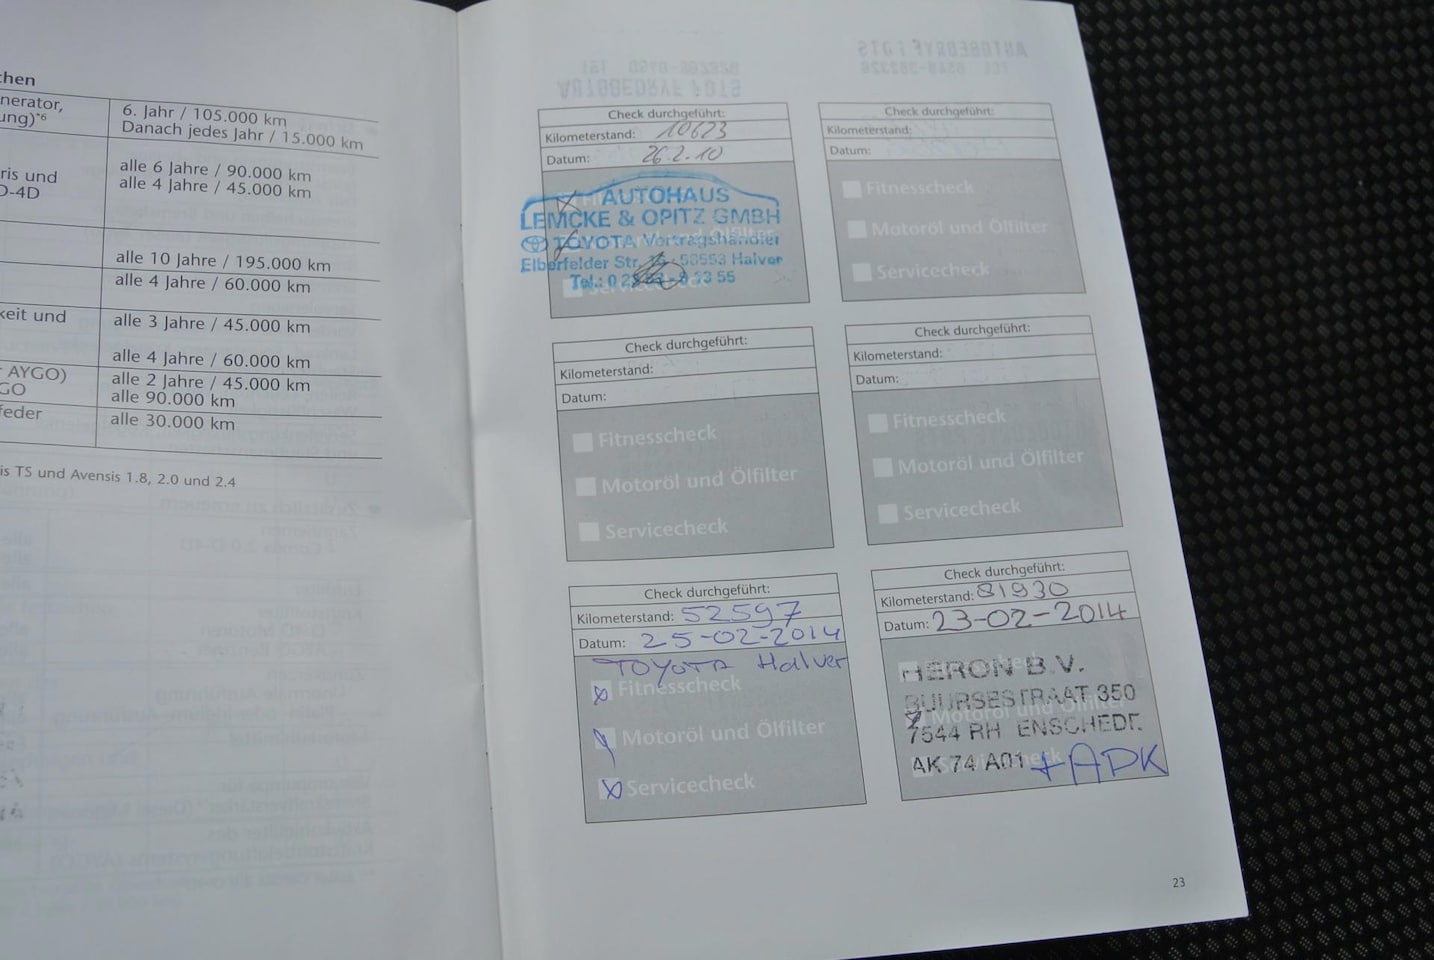 chen
nerator,
ung)*6
6. Jahr / 105.000 km
Danach jedes Jahr / 15.000 km
ris und
D-4D
alle 6 Jahre / 90.000 km
alle 4 Jahre / 45.000 km
alle 10 Jahre / 195.000 km
alle 4 Jahre / 60.000 km
keit und
alle 3 Jahre / 45.000 km
alle 4 Jahre / 60.000 km
AYGO)
GO
alle 2 Jahre / 45.000 km
alle 90.000 km
feder
alle 30.000 km
is TS und Avensis 1.8, 2.0 und 2.4
Check durchgeführt:
Kilometerstand: 10623
Datum: 26.2.10
AUTOHAUS
LEMCKE & OPITZ GMBH
TOYOTA Vertragshändler
Elberfelder Str. 58553 Halver
Tel.: 0
Servicecheck
Check durchgeführt:
Kilometerstand:
Datum:
Fitnesscheck
Motoröl und Ölfilter
Servicecheck
Check durchgeführt:
Kilometerstand:
Datum:
Fitnesscheck
Motoröl und Ölfilter
Servicecheck
Check durchgeführt:
Kilometerstand:
Datum:
Fitnesscheck
Motoröl und Ölfilter
Servicecheck
Check durchgeführt:
Kilometerstand: 52597
Datum: 25-02-2014
TOYOTA Halver
Fitnesscheck
Motoröl und Ölfilter
Servicecheck
Check durchgeführt:
Kilometerstand: 81930
Datum: 23-02-2014
HERON B.V.
BUURSESTRAAT 350
Motoröl und Ölfilter
7544 RH ENSCHEDE
AK 74 A01 + APK
23